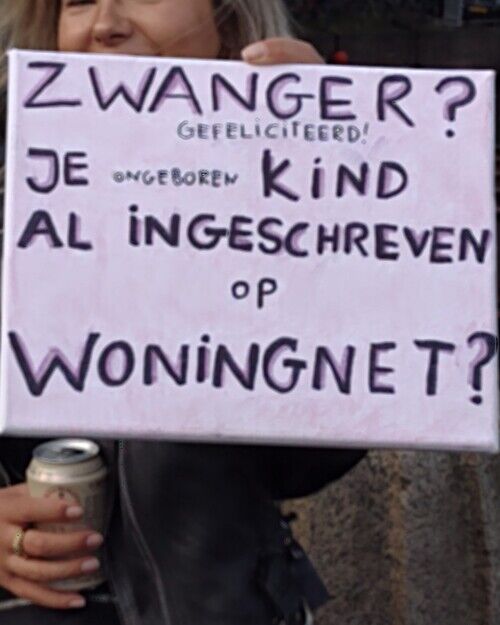 ZWANGER?
GEFELICITEERD!
JE ONGEBOREN KIND
AL INGESCHREVEN
OP
WONINGNET?